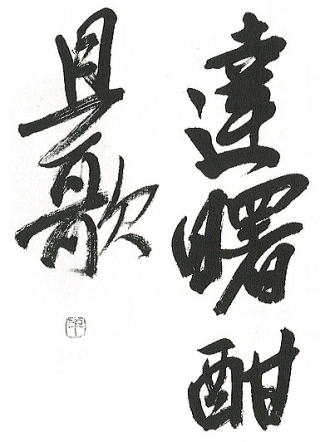 達曙酣
且歌